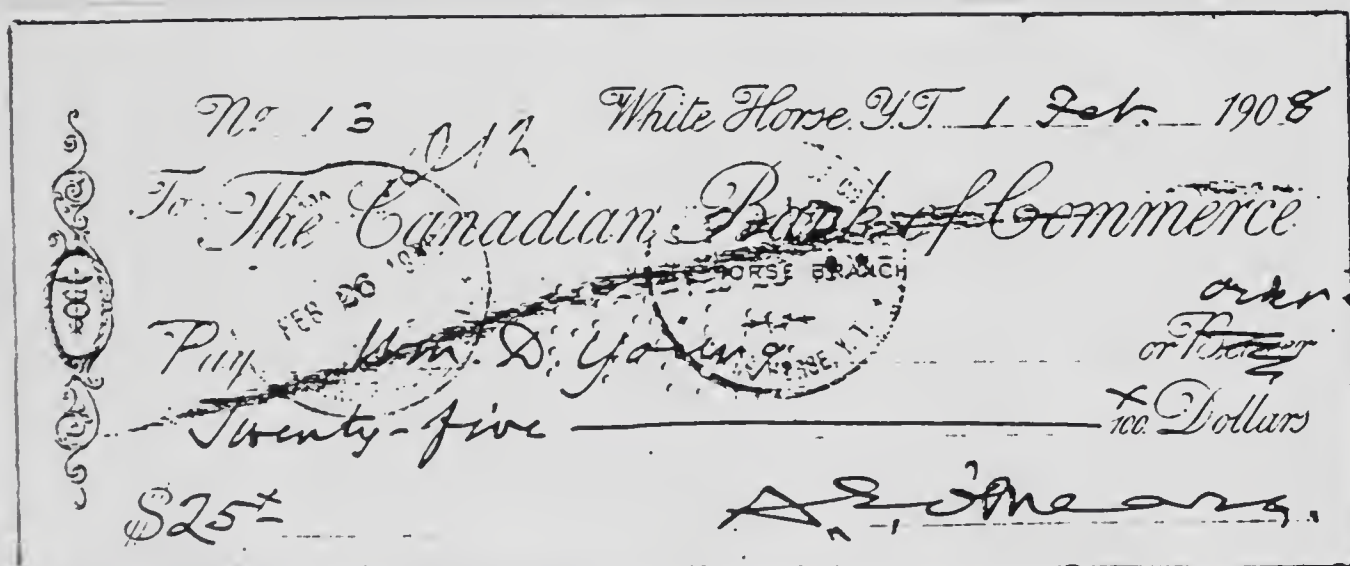 No. 13 White Horse. Y.T. 1 Feb. 1908
012
To The Canadian Bank of Commerce
FEB 26
HORSE BRANCH
order
Pay Wm. D. Young or Bearer
Twenty-five x/100 Dollars
$25x
A. E. O'Meara.